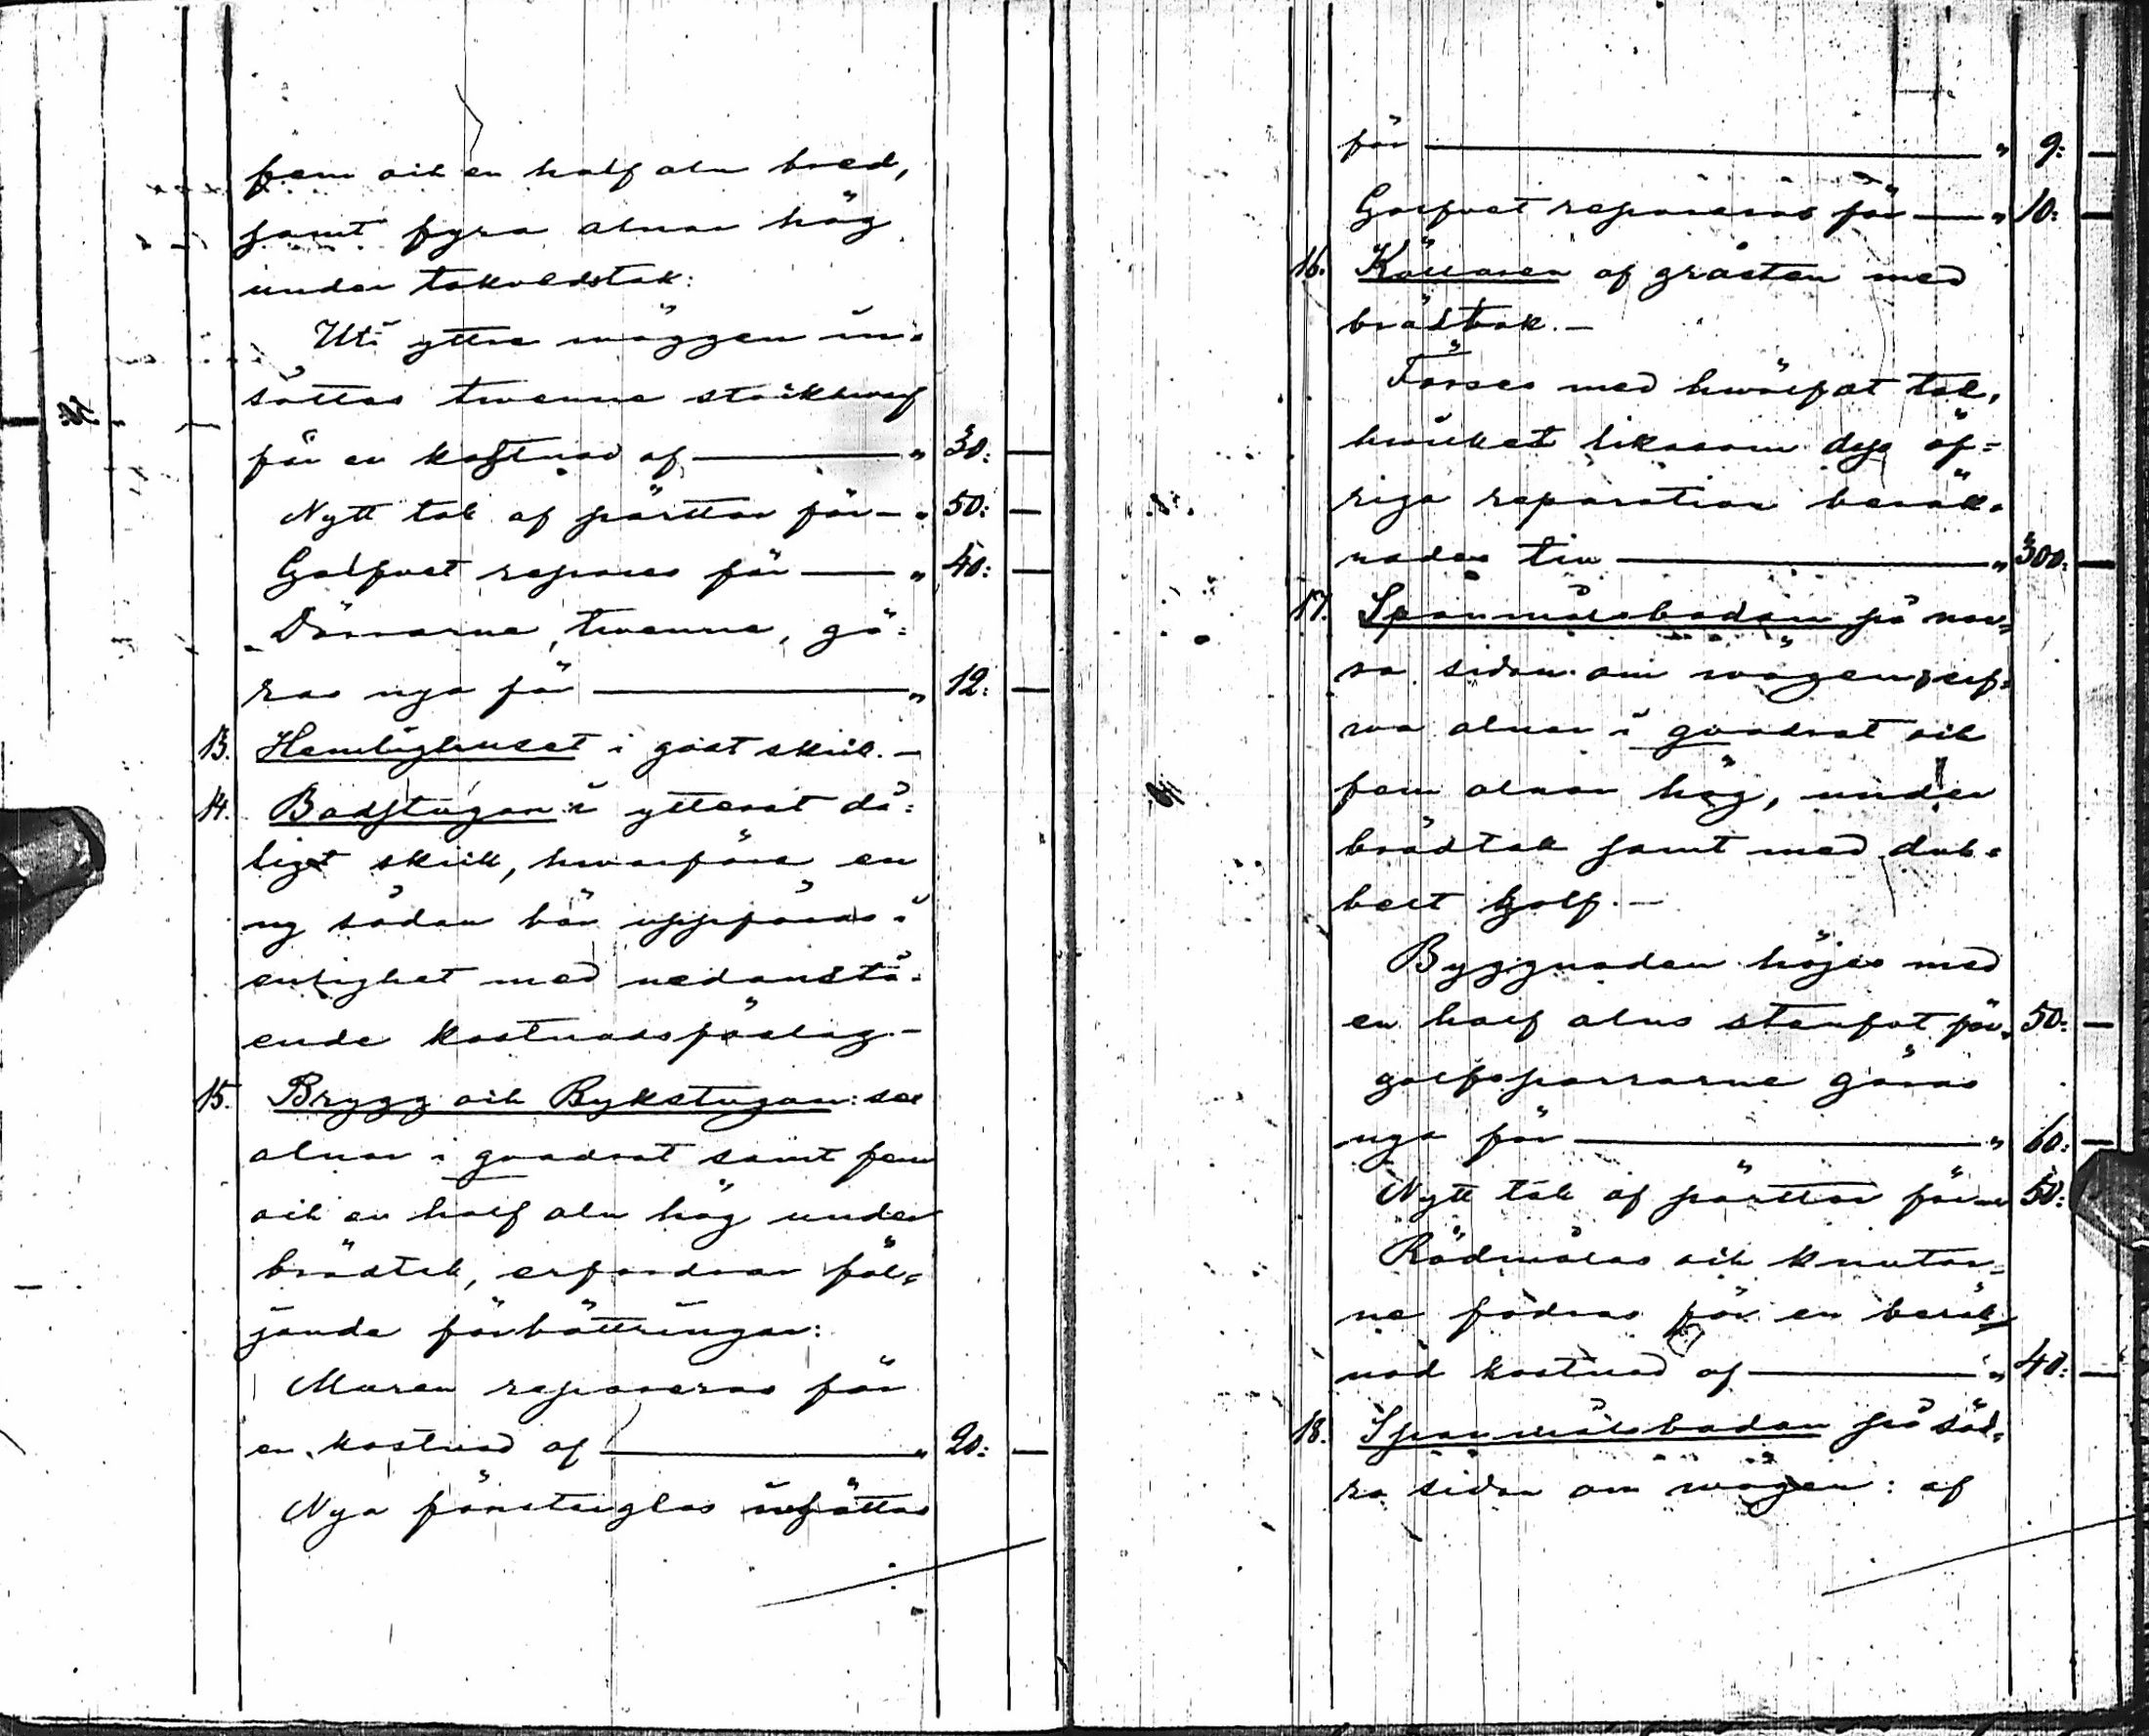 fem och en half aln bred,
samt fyra alnar hög
under takvedstak:
Uti yttre wäggen in-
sättas twenne stockhwarf
för en kostnad af — " 30: —
Nytt tak af pärttor för — " 50: —
Golfvet repares för — " 40: —
Dörrarne, twenne, gö=
ras nya för — " 12: —
13. Hemlighuset i godt skick. —
14. Badstugan i ytterst då=
ligt skick, hwarföre en
ny sådan bör uppföras i
enlighet med nedanstå-
ende kostnadsförslag. —
15. Brygg och Bykstugan: sex
alnar i qvadrat samt fem
och en half aln hög under
brädtak, erfordrar föl-
jande förbättringar:
Muren repareras för
en kostnad af — " 20: —
Nya fönsterglas insättas
för — " 9: —
Golfvet repareras för — " 10: —
16. Källaren af gråsten med
brädtak. —
Förses med hwälfdt tak,
hwilket liksom dess öf=
riga reparation beräk-
nades till — " 300: —
17. Spanmålsbodan på nor-
ra sidan om wägen; elf-
wa alnar i qvadrat och
fem alnar hög, under
brädtak samt med dub-
belt golf. —
Byggnaden höjes med
en half alns stenfot för " 50: —
golfsparrarne göras
nya för — " 60: —
Nytt tak af pärttor för " 50:
Rödmålas och knutar-
ne fodras för en beräk-
nad kostnad af — " 40: —
18. Spanmålsbodan på söd-
ra sidan om wägen: af